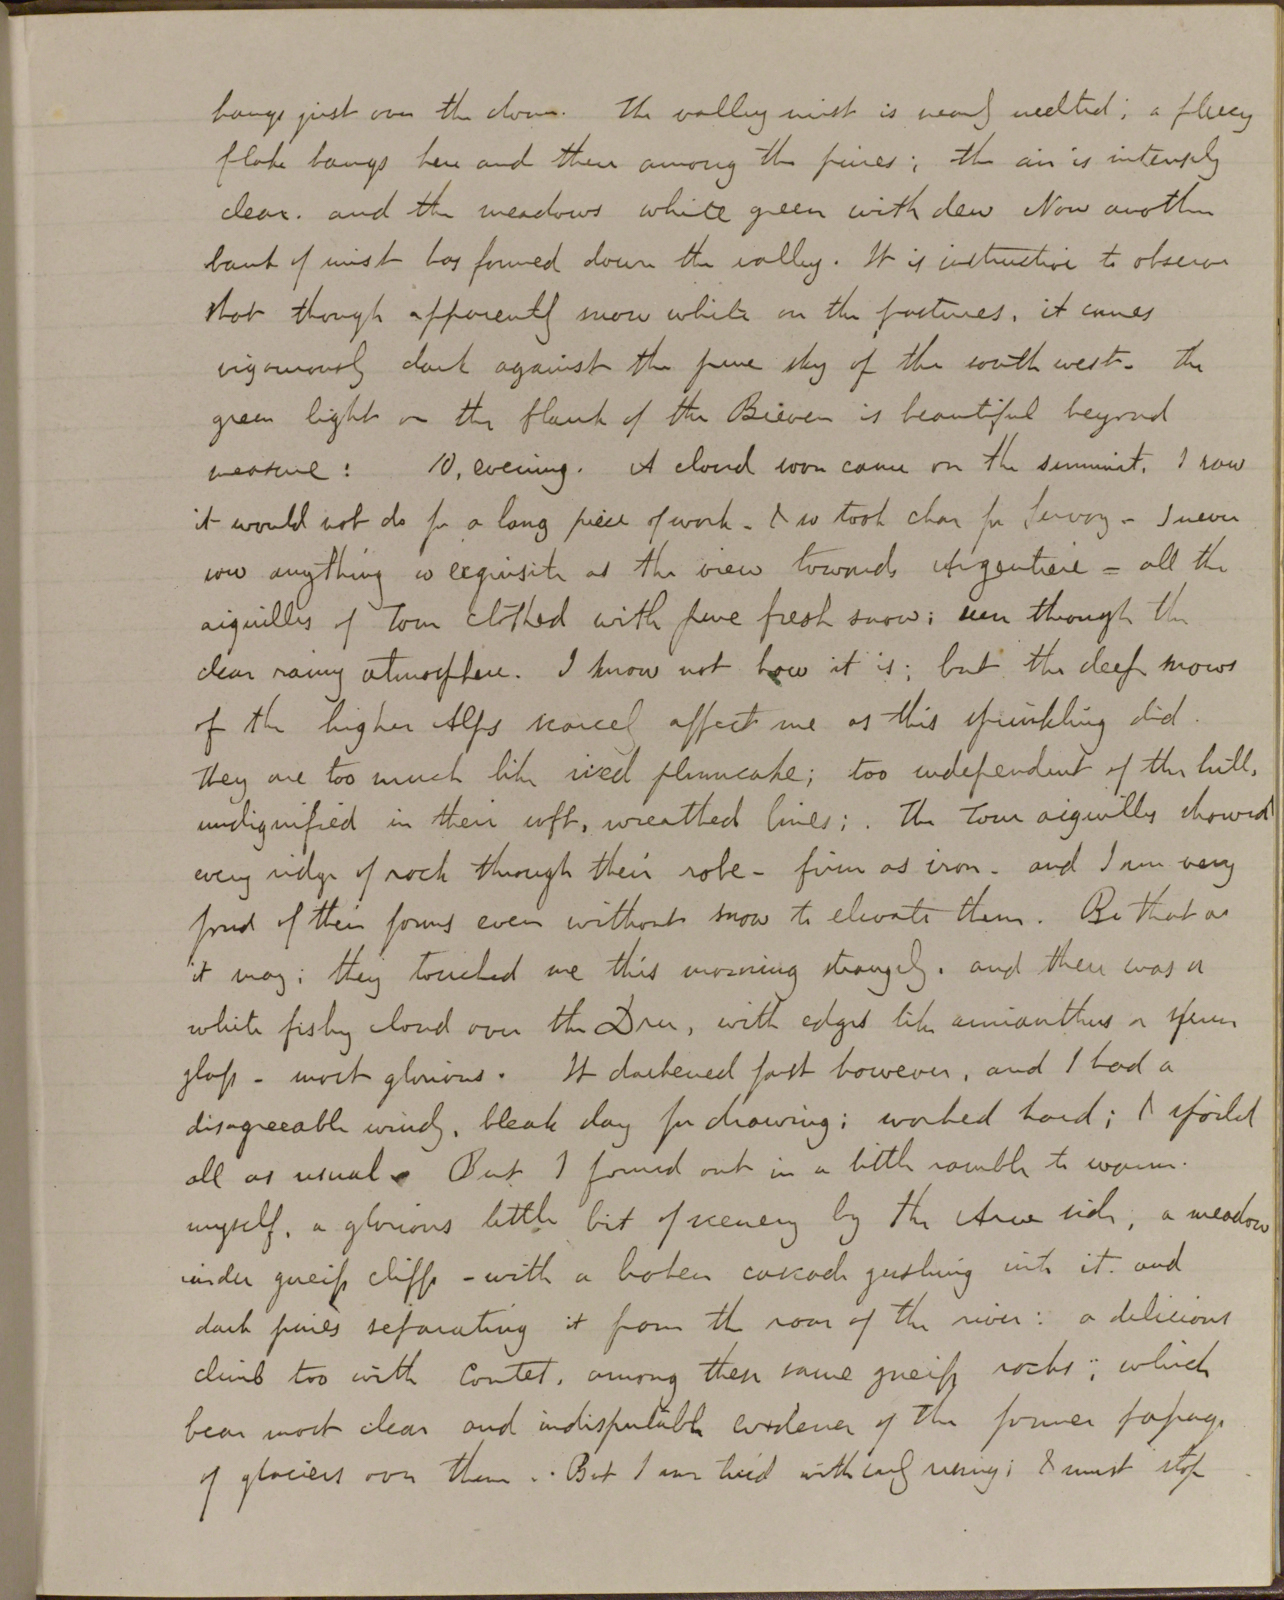 hangs just over the dome. The valley mist is nearly melted; a fleecy
flake hangs here and there among the pines; the air is intensely
clear. and the meadows white green with dew Now another
bank of mist has formed down the valley. It is instructive to observe
that though apparently snow white on the pastures, it comes
vigorously dark against the pure sky of the south west. The
green light on the flank of the Breven is beautiful beyond
measure: 10, evening. A cloud soon came on the summit. I saw
it would not do for a long piece of work - & so took char for Servoz - I never
saw anything so exquisite as the view towards Argentiere = all the
aiguilles of Tour clothed with pure fresh snow; seen through the
clear rainy atmosphere. I know not how it is; but the deep snows
of the higher Alps scarcely affect me as this sprinkling did.
They are too much like iced plumcake; too independent of the hill,
undignified in their soft, wreathed lines;. The Tour aiguilles showed
every ridge of rock through their robe - firm as iron - and I am very
fond of their forms even without snow to elevate them. Be that as
it may; they touched me this morning strangely. and there was a
white fishy cloud over the Dru, with edges like amianthus or spun
glass - most glorious. It darkened fast however, and I had a
disagreeable windy, bleak day for drawing; worked hard; & spoiled
all as usual. But I found out in a little ramble to warm
myself, a glorious little bit of scenery by the Arve side, a meadow
under gneiss cliffs - with a broken cascade gushing into it. and
dark pines separating it from the roar of the river: a delicious
climb too with Coutet, among these same gneiss rocks; which
bear most clear and indisputable evidence of the former passage
of glaciers over them.. But I am tired with early rising; & must stop